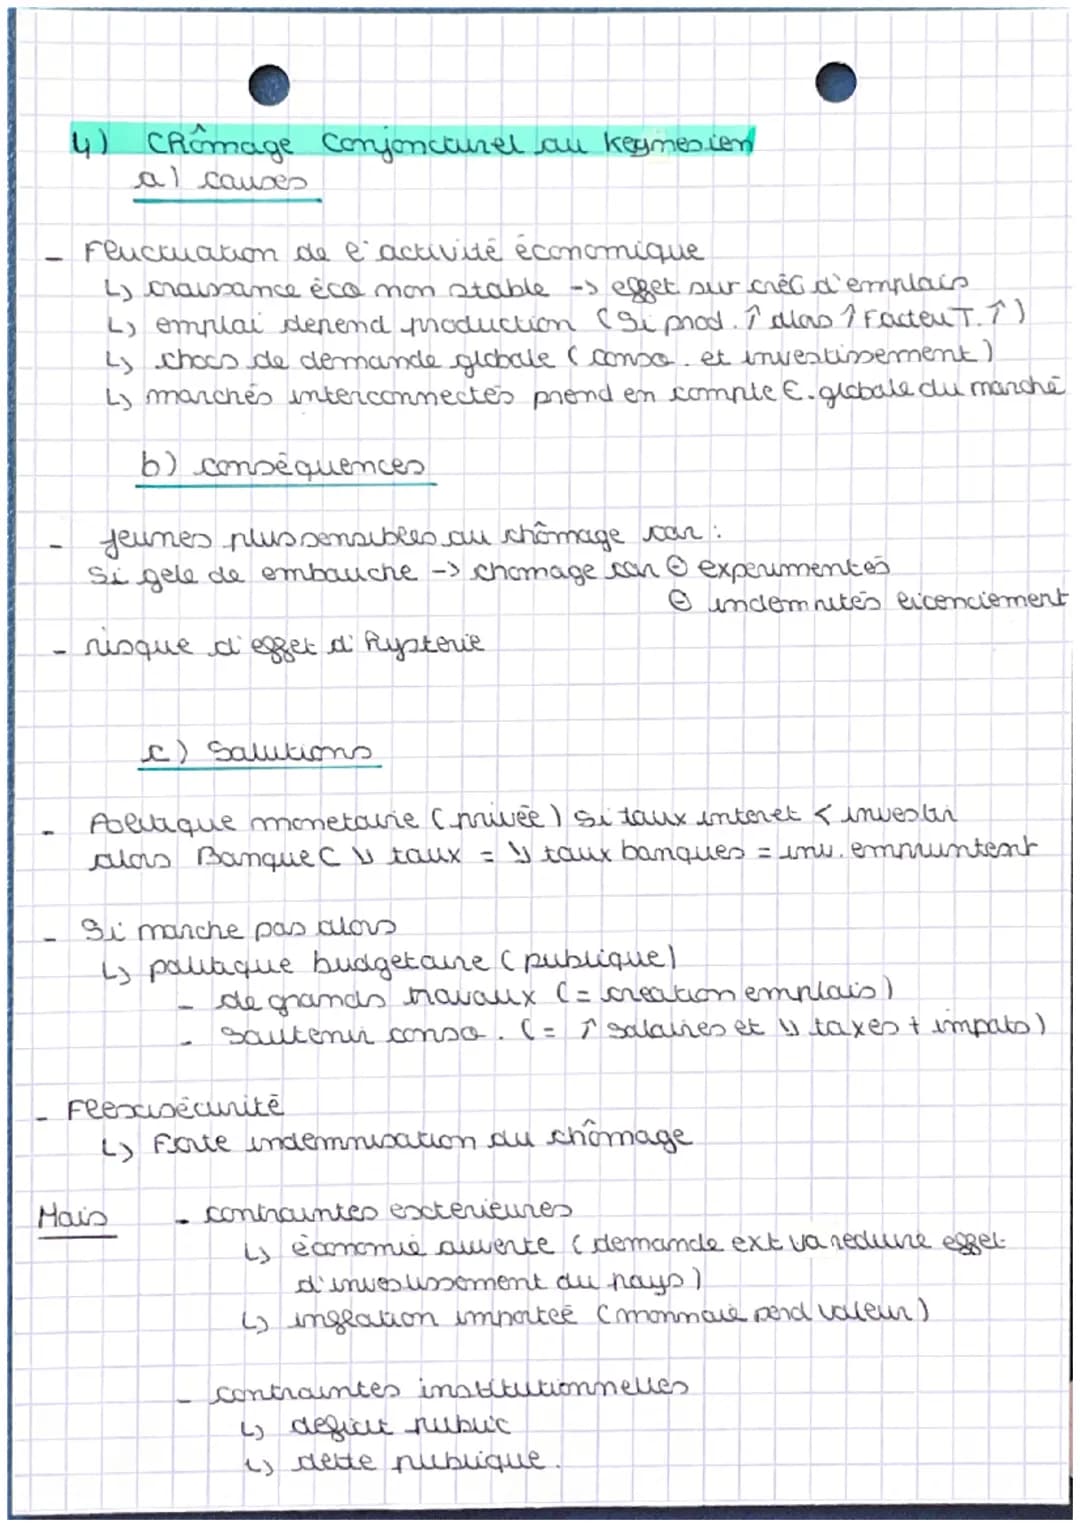 4) Chômage Conjoncturel ou keynesien
a) causes
- Fluctuation de l'activité économique
↳ croissance éco non stable -> effet sur créa d'emplois
↳ emploi depend production (Si prod. ↑ alors ↑ Facteu T. ↑)
↳ chocs de demande globale (conso. et investissement)
↳ marchés interconnectés prend en compte E. globale du marché
b) conséquences
- jeunes plus sensibles au chômage car :
Si gele de embauche -> chomage car ⊖ experimentés
⊖ indemnités licenciement
- risque d'effet d'hysterie
c) Solutions
- Politique monetaire (privée) Si taux interet < investir
alors Banque C ↘ taux = ↘ taux banques = inv. empruntent
- Si marche pas alors
↳ politique budgetaire (publique)
- de grands travaux (= creation emplois)
- Soutenir conso. (= ↑ salaires et ↘ taxes + impots)
- Flexisécurité
↳ Forte indemnisation du chômage
Mais - contraintes exterieures
↳ économie ouverte (demande ext va reduire effet
d'investissement du pays)
↳ inflation importeé (monnaie perd valeur)
- contraintes institutionnelles
↳ deficit public
↳ dette publique.